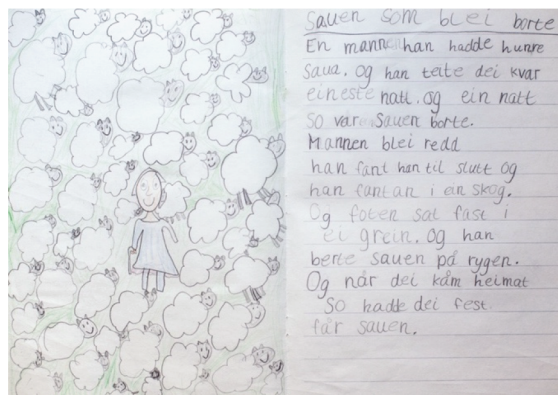 Sauen som blei borte
En mann han hadde hunre
Saua. og han telte dei kvar
eineste natt. og ein natt
So var Sauen borte.
Mannen blei redd
han fant han til slutt og
han fant an i ein skog.
Og foten sat fast i
ei grein. og han
berte sauen på rygen.
Og når dei kåm heimat
So hadde dei fest
får sauen.